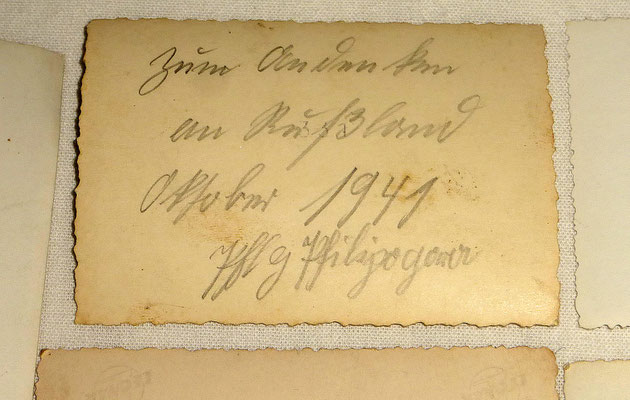 Zum Andenken
an Rußland
Oktober 1941